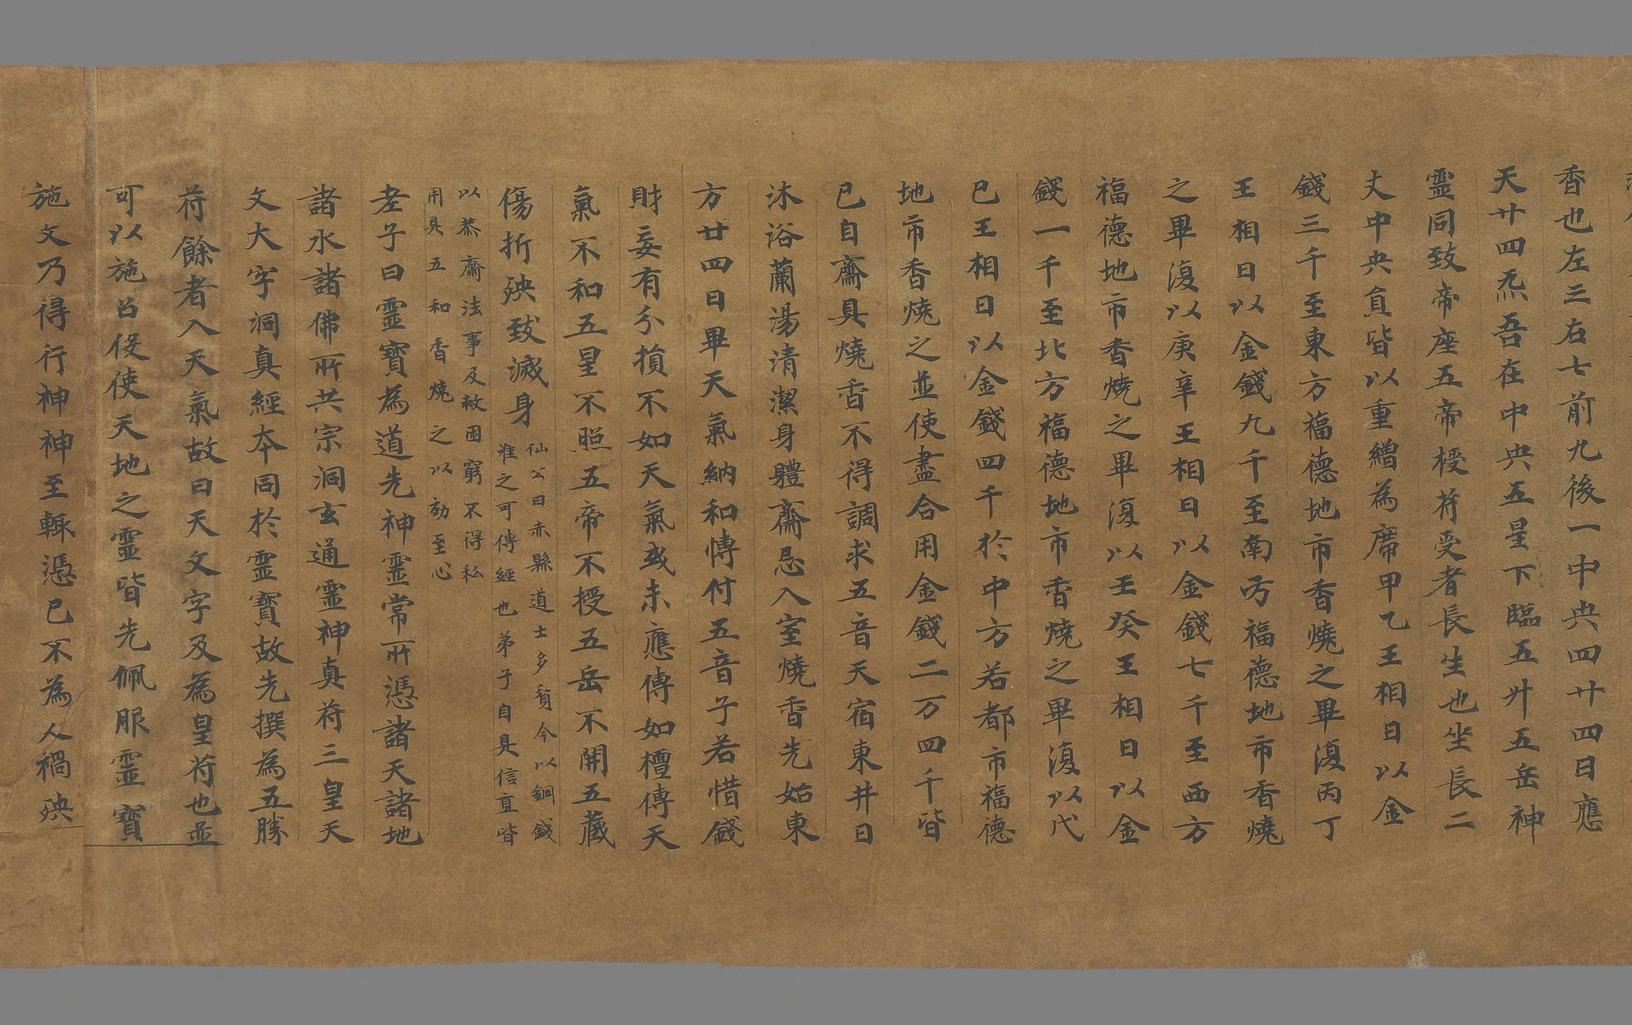 香也左三右七前九後一中央四廿四日應
天廿四炁吾在中央五星下臨五卅五岳神
霊同致帝座五帝授苻受者長生也坐長二
丈中央負皆以重繒為席甲乙王相日以金
錢三千至東方福德地市香燒之畢復丙丁
王相日以金錢九千至南方福德地市香燒
之畢復以庚辛王相日以金錢七千至西方
福德地市香燒之畢復以壬癸王相日以金
錢一千至北方福德地市香燒之畢復以戊
巳王相日以金錢四千於中方若都市福德
地市香燒之並使盡合用金錢二万四千皆
已自齋具燒香不得調求五音天宿東井日
沐浴蘭湯清潔身體齋忌入室燒香先始東
方廿四日畢天氣納和慱付五音子若惜錢
財妄有分損不如天氣或未應傳如檀傳天
氣不和五星不照五帝不授五岳不開五藏
傷折殃致滅身 仙公曰赤縣道士多貧今以銅錢
准之可傳經也弟子自具信直皆
以恭齋法事及救困窮不得私
用具五和香燒之以効至心
老子曰霊寳為道先神霊常所憑諸天諸地
諸水諸佛所共宗洞玄通霊神真苻三皇天
文大字洞真經本同於霊寳故先撰為五勝
苻餘者入天氣故曰天文字及為皇苻也並
可以施召伇使天地之霊皆先佩服霊寳
施文乃得行神神至輙憑已不為人禍殃